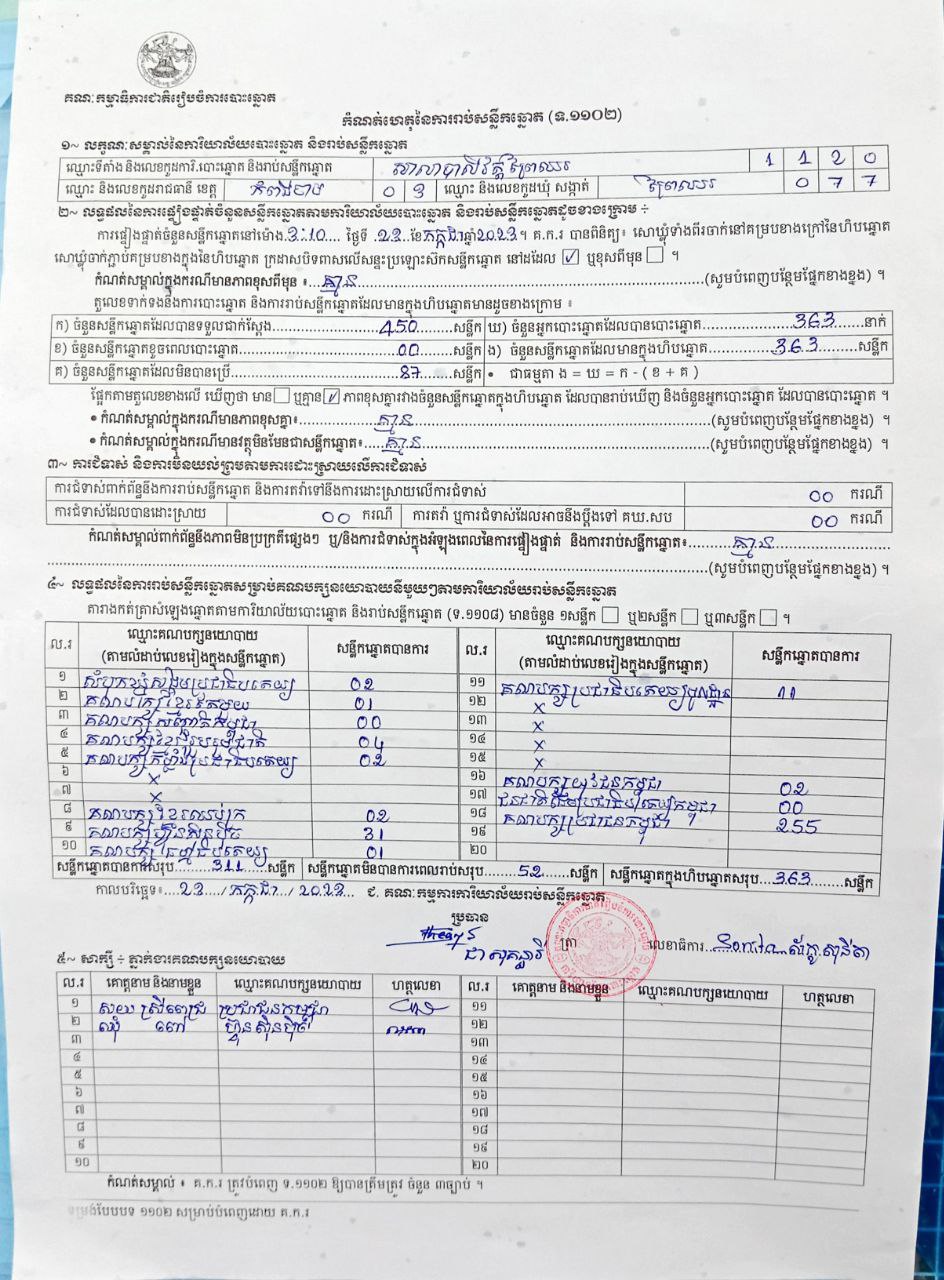 គណៈកម្មាធិការជាតិរៀបចំការបោះឆ្នោត
កំណត់ហេតុនៃការរាប់សន្លឹកឆ្នោត (ទ.១១០២)
១~ លក្ខណៈសម្គាល់នៃការិយាល័យបោះឆ្នោត និងរាប់សន្លឹកឆ្នោត
ឈ្មោះទីតាំង និងលេខកូដការិ.បោះឆ្នោត និងរាប់សន្លឹកឆ្នោត សាលាបាលីវត្តព្រៃឈរ 1 1 2 0
ឈ្មោះ និងលេខកូដរាជធានី ខេត្ត កំពង់ចាម 0 3 ឈ្មោះ និងលេខកូដឃុំ សង្កាត់ ព្រៃឈរ 0 7 7
២~ លទ្ធផលនៃការផ្ទៀងផ្ទាត់ចំនួនសន្លឹកឆ្នោតតាមការិយាល័យបោះឆ្នោត និងរាប់សន្លឹកឆ្នោតដូចខាងក្រោម ÷
ការផ្ទៀងផ្ទាត់ចំនួនសន្លឹកឆ្នោតនៅម៉ោង 3:10 ថ្ងៃទី 23 ខែ កក្កដា ឆ្នាំ 2023 ។ គ.ក.រ បានពិនិត្យ៖ សោឃ្លុំទាំងពីរចាក់នៅគម្របខាងក្រៅនៃហិបឆ្នោត
សោឃ្លុំចាក់ភ្ជាប់គម្របខាងក្នុងនៃហិបឆ្នោត ក្រដាសបិទពាសលើសន្ទះប្រឡោះស៊កសន្លឹកឆ្នោត នៅដដែល ☑ ឬខុសពីមុន ☐ ។
កំណត់សម្គាល់ក្នុងករណីមានភាពខុសពីមុន ៖ គ្មាន (សូមបំពេញបន្ថែមផ្នែកខាងខ្នង) ។
តួលេខទាក់ទងនឹងការបោះឆ្នោត និងការរាប់សន្លឹកឆ្នោតដែលមានក្នុងហិបឆ្នោតមានដូចខាងក្រោម ៖
ក) ចំនួនសន្លឹកឆ្នោតដែលបានទទួលជាក់ស្តែង 450 សន្លឹក ឃ) ចំនួនអ្នកបោះឆ្នោតដែលបានបោះឆ្នោត 363 នាក់
ខ) ចំនួនសន្លឹកឆ្នោតខូចពេលបោះឆ្នោត 00 សន្លឹក ង) ចំនួនសន្លឹកឆ្នោតដែលមានក្នុងហិបឆ្នោត 363 សន្លឹក
គ) ចំនួនសន្លឹកឆ្នោតដែលមិនបានប្រើ 87 សន្លឹក • ជាធម្មតា ង = ឃ = ក - ( ខ + គ )
ផ្អែកតាមតួលេខខាងលើ ឃើញថា មាន ☐ ឬគ្មាន ☑ ភាពខុសគ្នារវាងចំនួនសន្លឹកឆ្នោតក្នុងហិបឆ្នោត ដែលបានរាប់ឃើញ និងចំនួនអ្នកបោះឆ្នោត ដែលបានបោះឆ្នោត ។
• កំណត់សម្គាល់ក្នុងករណីមានភាពខុសគ្នា៖ គ្មាន (សូមបំពេញបន្ថែមផ្នែកខាងខ្នង) ។
• កំណត់សម្គាល់ក្នុងករណីមានវត្ថុមិនមែនជាសន្លឹកឆ្នោត៖ គ្មាន (សូមបំពេញបន្ថែមផ្នែកខាងខ្នង) ។
៣~ ការជំទាស់ និងការមិនយល់ព្រមតាមការដោះស្រាយលើការជំទាស់
ការជំទាស់ពាក់ព័ន្ធនឹងការរាប់សន្លឹកឆ្នោត និងការតវ៉ាទៅនឹងការដោះស្រាយលើការជំទាស់ 00 ករណី
ការជំទាស់ដែលបានដោះស្រាយ 00 ករណី ការតវ៉ា ឬការជំទាស់ដែលអាចនឹងប្តឹងទៅ គឃ.សប 00 ករណី
កំណត់សម្គាល់ពាក់ព័ន្ធនឹងភាពមិនប្រក្រតីផ្សេងៗ ឬ/និងការជំទាស់ក្នុងអំឡុងពេលនៃការផ្ទៀងផ្ទាត់ និងការរាប់សន្លឹកឆ្នោត៖ គ្មាន
(សូមបំពេញបន្ថែមផ្នែកខាងខ្នង) ។
៤~ លទ្ធផលនៃការរាប់សន្លឹកឆ្នោតសម្រាប់គណបក្សនយោបាយនីមួយៗតាមការិយាល័យរាប់សន្លឹកឆ្នោត
តារាងកត់ត្រាសំឡេងឆ្នោតតាមការិយាល័យបោះឆ្នោត និងរាប់សន្លឹកឆ្នោត (ទ.១១០៨) មានចំនួន ១សន្លឹក ☐ ឬ២សន្លឹក ☐ ឬ៣សន្លឹក ☐ ។
ល.រ ឈ្មោះគណបក្សនយោបាយ (តាមលំដាប់លេខរៀងក្នុងសន្លឹកឆ្នោត) សន្លឹកឆ្នោតបានការ ល.រ ឈ្មោះគណបក្សនយោបាយ (តាមលំដាប់លេខរៀងក្នុងសន្លឹកឆ្នោត) សន្លឹកឆ្នោតបានការ
១ សំបុកឃ្មុំសង្គមប្រជាធិបតេយ្យ 02 ១១ គណបក្សប្រជាធិបតេយ្យមូលដ្ឋាន 11
២ គណបក្សខ្មែរតែមួយ 01 ១២ x
៣ គណបក្សសញ្ជាតិកម្ពុជា 00 ១៣ x
៤ គណបក្សខ្មែររួបរួមជាតិ 04 ១៤ x
៥ គណបក្សកម្លាំងប្រជាធិបតេយ្យ 02 ១៥ x
៦ x ១៦ គណបក្សយុវជនកម្ពុជា 02
៧ x ១៧ ជនជាតិដើមប្រជាធិបតេយ្យកម្ពុជា 00
៨ គណបក្សខ្មែរឈប់ក្រ 02 ១៨ គណបក្សប្រជាជនកម្ពុជា 255
៩ គណបក្សហ៊្វុនស៊ិនប៉ិច 31 ១៩
១០ គណបក្សធម្មាធិបតេយ្យ 01 ២០
សន្លឹកឆ្នោតបានការសរុប 311 សន្លឹក សន្លឹកឆ្នោតមិនបានការពេលរាប់សរុប 52 សន្លឹក សន្លឹកឆ្នោតក្នុងហិបឆ្នោតសរុប 363 សន្លឹក
កាលបរិច្ឆេទ៖ 23 / កក្កដា / 2023 ជ. គណៈកម្មការការិយាល័យរាប់សន្លឹកឆ្នោត
ប្រធាន
ជា សុគន្ធារី ត្រា លេខាធិការ
៥~ សាក្សី ÷ ភ្នាក់ងារគណបក្សនយោបាយ
ល.រ គោត្តនាម និងនាមខ្លួន ឈ្មោះគណបក្សនយោបាយ ហត្ថលេខា ល.រ គោត្តនាម និងនាមខ្លួន ឈ្មោះគណបក្សនយោបាយ ហត្ថលេខា
១ សយ ស្រីពេជ្រ ប្រជាជនកម្ពុជា ១១
២ ឈុំ ពៅ ហ៊្វុនស៊ិនប៉ិច ១២
៣ ១៣
៤ ១៤
៥ ១៥
៦ ១៦
៧ ១៧
៨ ១៨
៩ ១៩
១០ ២០
កំណត់សម្គាល់ ៖ គ.ក.រ ត្រូវបំពេញ ទ.១១០២ ឱ្យបានត្រឹមត្រូវ ចំនួន ៣ច្បាប់ ។
ទម្រង់បែបបទ ១១០២ សម្រាប់បំពេញដោយ គ.ក.រ